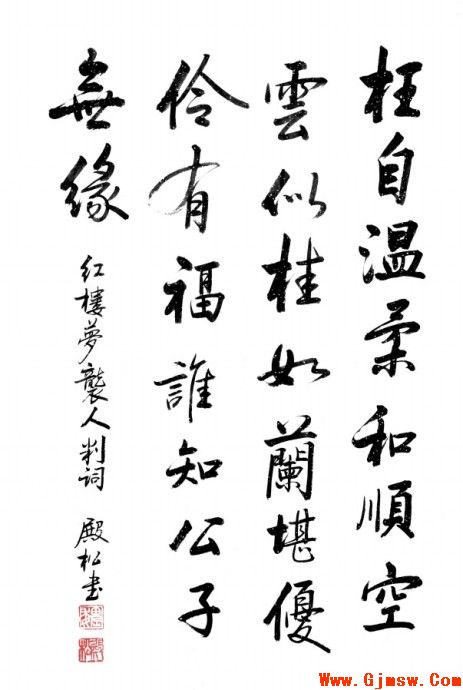 枉自温柔和順空
雲似桂如蘭堪優
伶有福誰知公子
無緣
紅樓夢襲人判詞 殿松书
Www.Gjmsw.Com